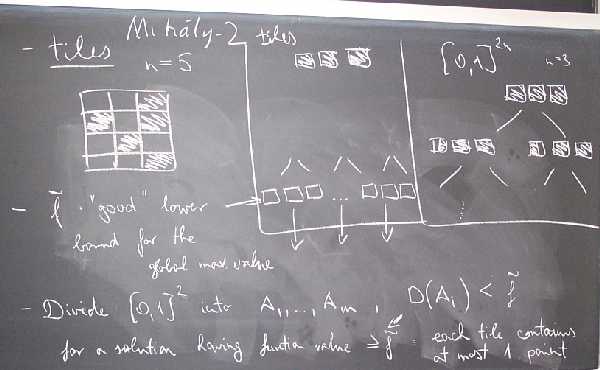 - tiles Mihály-2 tiles
n=5
[0,1]^{2n} n=3
...
- f̃ · "good" lower
bound for the
global max. value
- Divide [0,1]^2 into A_1,..., A_m, D(A_i) < f̃
for a solution having function value ≥ f̃ : each tile contains
at most 1 point